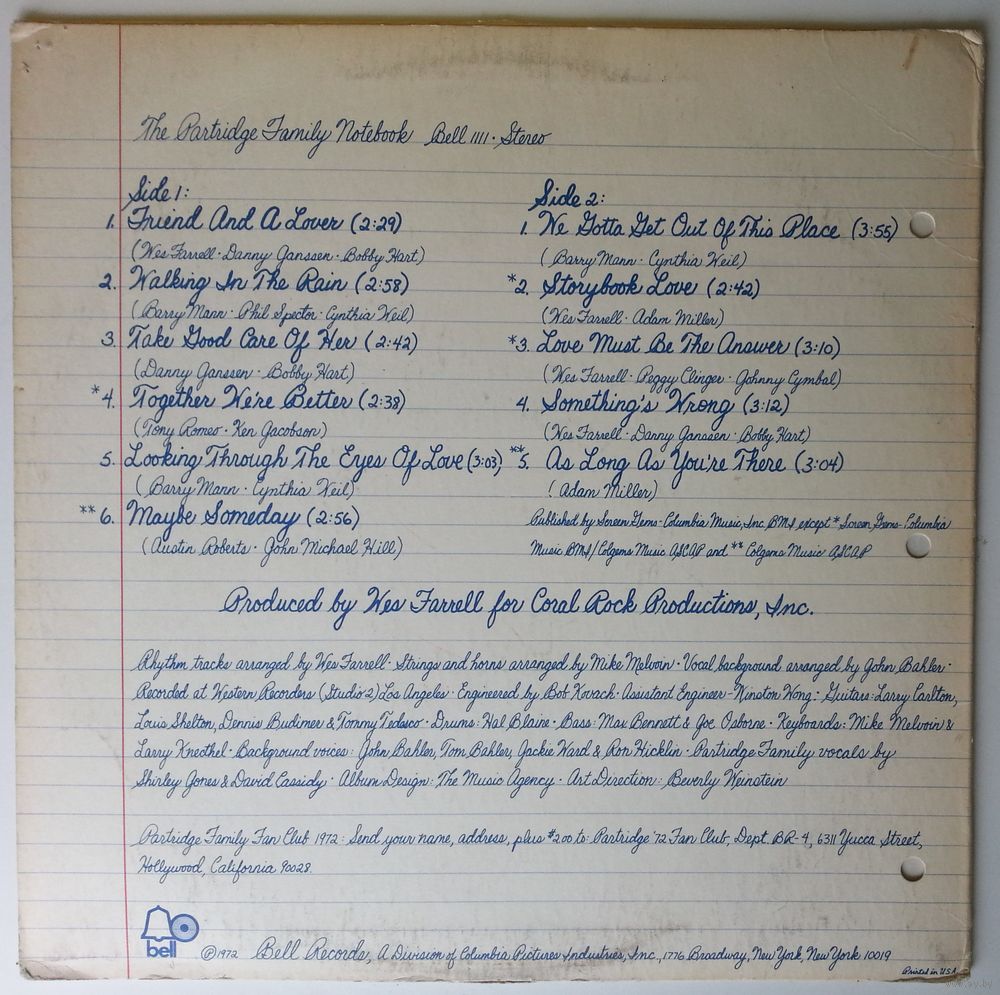 The Partridge Family Notebook Bell 1111 · Stereo
Side 1:
1. Friend And A Lover (2:29)
(Wes Farrell · Danny Janssen · Bobby Hart)
2. Walking In The Rain (2:58)
(Barry Mann · Phil Spector · Cynthia Weil)
3. Take Good Care Of Her (2:42)
(Danny Janssen · Bobby Hart)
*4. Together We're Better (2:38)
(Tony Romeo · Ken Jacobson)
5. Looking Through The Eyes Of Love (3:03)
(Barry Mann · Cynthia Weil)
**6. Maybe Someday (2:56)
(Austin Roberts · John Michael Hill)
Side 2:
1. We Gotta Get Out Of This Place (3:55)
(Barry Mann · Cynthia Weil)
*2. Storybook Love (2:42)
(Wes Farrell · Adam Miller)
*3. Love Must Be The Answer (3:10)
(Wes Farrell · Peggy Clinger · Johnny Cymbal)
4. Something's Wrong (3:12)
(Wes Farrell · Danny Janssen · Bobby Hart)
**5. As Long As You're There (3:04)
(Adam Miller)
Published by Screen Gems-Columbia Music, Inc. BMI except * Screen Gems-Columbia
Music BMI/Colgems Music ASCAP and ** Colgems Music ASCAP
Produced by Wes Farrell for Coral Rock Productions, Inc.
Rhythm tracks arranged by Wes Farrell · Strings and horns arranged by Mike Melvoin · Vocal background arranged by John Bahler ·
Recorded at Western Recorders (Studio 2) Los Angeles · Engineered by Bob Kovach · Assistant Engineer-Winston Wong · Guitars: Larry Carlton,
Louis Shelton, Dennis Budimer & Tommy Tedesco · Drums: Hal Blaine · Bass: Max Bennett & Joe Osborne · Keyboards: Mike Melvoin &
Larry Knechel · Background voices: John Bahler, Tom Bahler, Jackie Ward & Ron Hicklin · Partridge Family vocals by
Shirley Jones & David Cassidy · Album Design: The Music Agency · Art Direction: Beverly Weinstein
Partridge Family Fan Club 1972: Send your name, address, plus $2.00 to: Partridge '72 Fan Club, Dept. BR-4, 6311 Yucca Street,
Hollywood, California 90028.
bell
©1972 Bell Records, A Division of Columbia Pictures Industries, Inc., 1776 Broadway, New York, New York 10019
Printed in U.S.A.